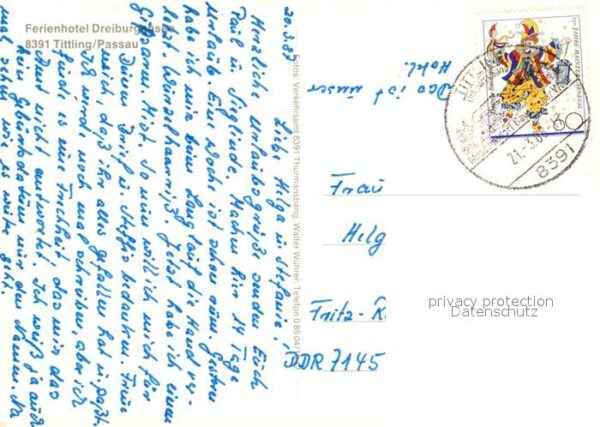 Ferienhotel Dreiburgensee
8391 Tittling/Passau
20.3.88
Liebe Helga u. Stefanie!
Herzliche Urlaubsgrüße senden Euch
Paul u. Sieglinde. Machen hier 14 Tage
Urlaub. Eine Woche ist schon rum. Gestern
habe ich mir beim Lang lauf die Hand ver-
Jetzt habe ich einen
Gipsarm. Mist. So nun will ich mich für
Deinen Brief u. Steffis bedanken. Freue
mich, daß ihr alles gefallen hat u. paßt.
noch mal schreiben, aber ich
finde es eine Frechheit, das mir das
nicht antwortet. Ich weiß ja auch
kein Geburtsdatum nur den Namen. Na
mal sehen wie es weiter geht.
Fotos: Verkehrsamt 8391 Thurmansbang, Walter Wührer, Telefon 0 85 04/
Das ist unser
Hotel.
150 JAHRE MAINZER
60
21.-3.88
8391
Frau
Helg
Fritz-R
DDR 7145
privacy protection
Datenschutz